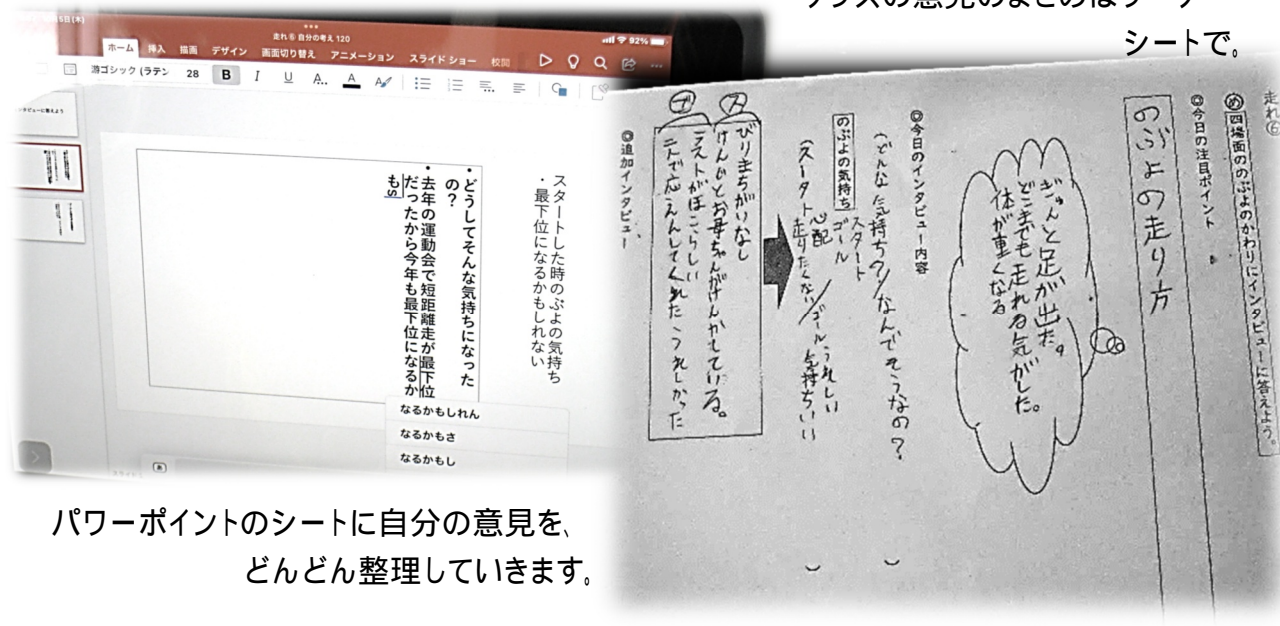 シートで。
5日(木)
走れ⑥ 自分の考え 120
92%
ホーム 挿入 描画 デザイン 画面切り替え アニメーション スライド ショー 校閲
游ゴシック (ラテン 28 B I U A... A
スタートした時のぶよの気持ち
・最下位になるかもしれない
・どうしてそんな気持ちになった
の?
・去年の運動会で短距離走が最下位
だったから今年も最下位になるか
もs
なるかもしれん
なるかもさ
なるかもし
あ
パワーポイントのシートに自分の意見を、
どんどん整理していきます。
走れ⑥
め 四場面ののぶよのかわりにインタビューに答えよう。
◎今日の注目ポイント
のぶよの走り方
ぎゅんと足が出た。
どこまでも走れる気がした。
体が重くなる
◎今日のインタビュー内容
(どんな気持ち?/なんでそうなの?)
のぶよの気持ち
スタート
ゴール
心配
(スタート 走りたくない/ゴール うれしい
気持ちいい)
ス
びりまちがいなし
けんじとお母ちゃんがけんかしている。
ゴ
ラストがほこらしい
二人で応えんしてくれた うれしかった
◎追加インタビュー